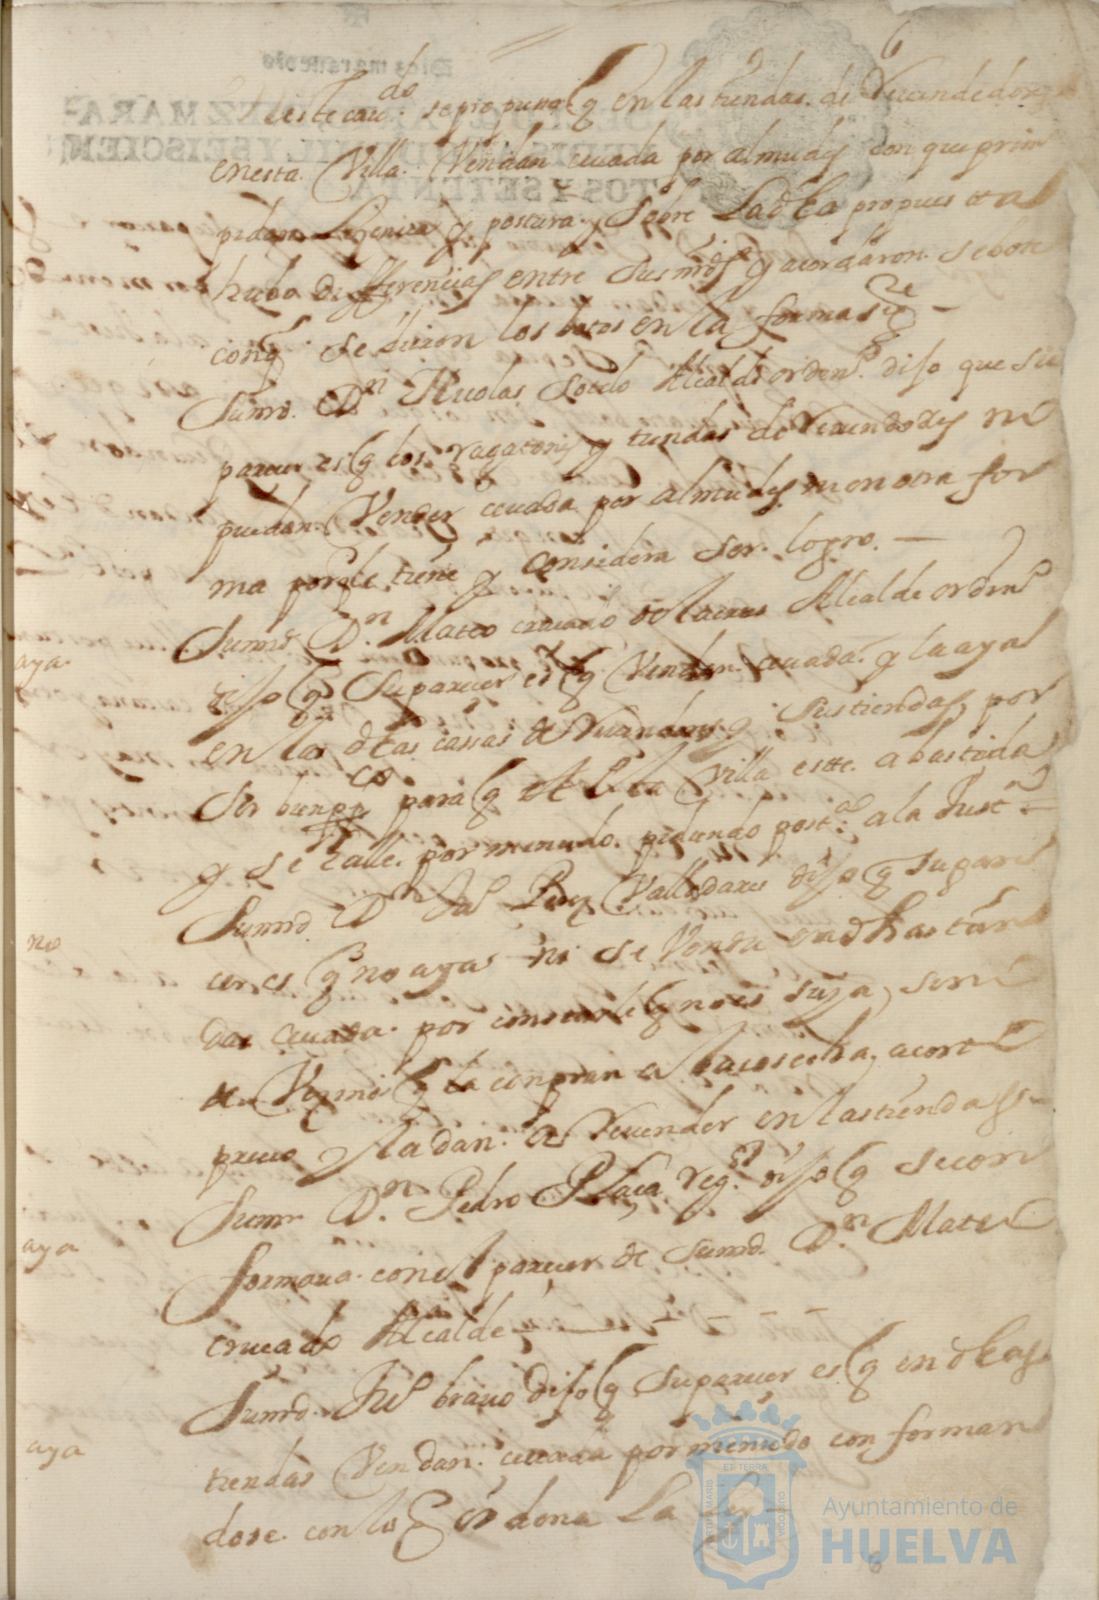 6
do
En este cavdo se propuso q en las tiendas de Vevendedores
en esta Villa Vendan cevada por almudes con que prim
pidan Lizencia y postura y sobre La dha propuesta
hubo diferencias entre sus mrds y acordaron se bote
conq se dieron los botos en la forma sigte
Sumrd Dn Nicolas Sotelo Alcalde ordeno dijo que su
parecer es q los regatones y tiendas de Vevendedores no
puedan Vender cevada por almudes ni en otra for
ma porqle tiene y Considera Ser logro
Sumrd Dn Mateo cruzado de Alcalde ordino
aya
dijo q Su parecer es q Vendan cevada y la aya
en las dhas cassas de Vevendores y sus tiendas, por
Ser bien pco para q esta Villa este abastida
y se halle por menudo pidiendo posta a la Justa
Sumrd Dn Jul Perez Valladares dijo q su pare
no
cer es q no aya ni se Venda en dhas tien
das cevada por constarle q no es suya, sino
de Vezinos q la conpran a la cosecha, a corto
precio y la dan a Vevender en las tiendas
Sumrd Dn Pedro Plaza regor dijo q se con
aya
formava con el parecer de Sumrd Dn Mateo
cruzado Alcalde
Sumrd Jul bravo dijo q su parecer es q en dhas
aya
tiendas Vendan cevada por menudo con forman
dose con lo q ordena La
ET TERRA
PORTUS MARIS
CUSTODIA
Ayuntamiento de
HUELVA